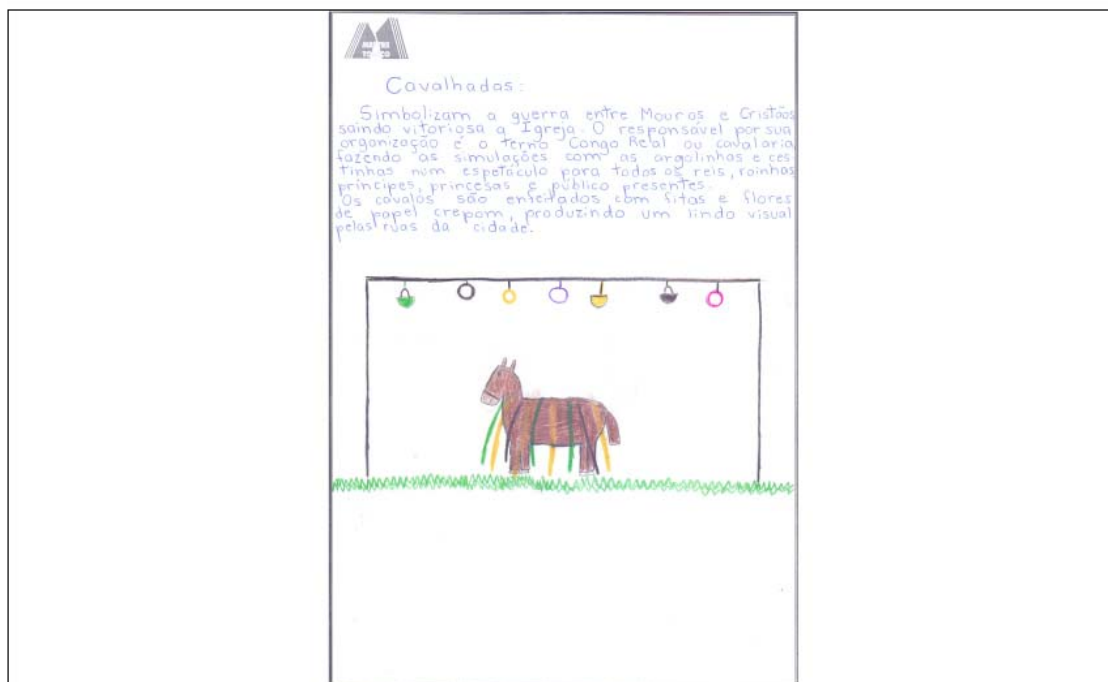 MESTRE
Cavalhadas:
Simbolizam a guerra entre Mouros e Cristãos
saindo vitoriosa a Igreja. O responsável por sua
organização é o terno Congo Real ou cavalaria
fazendo as simulações com as argolinhas e ces-
tinhas num espetáculo para todos os reis, rainhas
príncipes, princesas e público presentes.
Os cavalos são enfeitados com fitas e flores
de papel crepom, produzindo um lindo visual
pelas ruas da cidade.